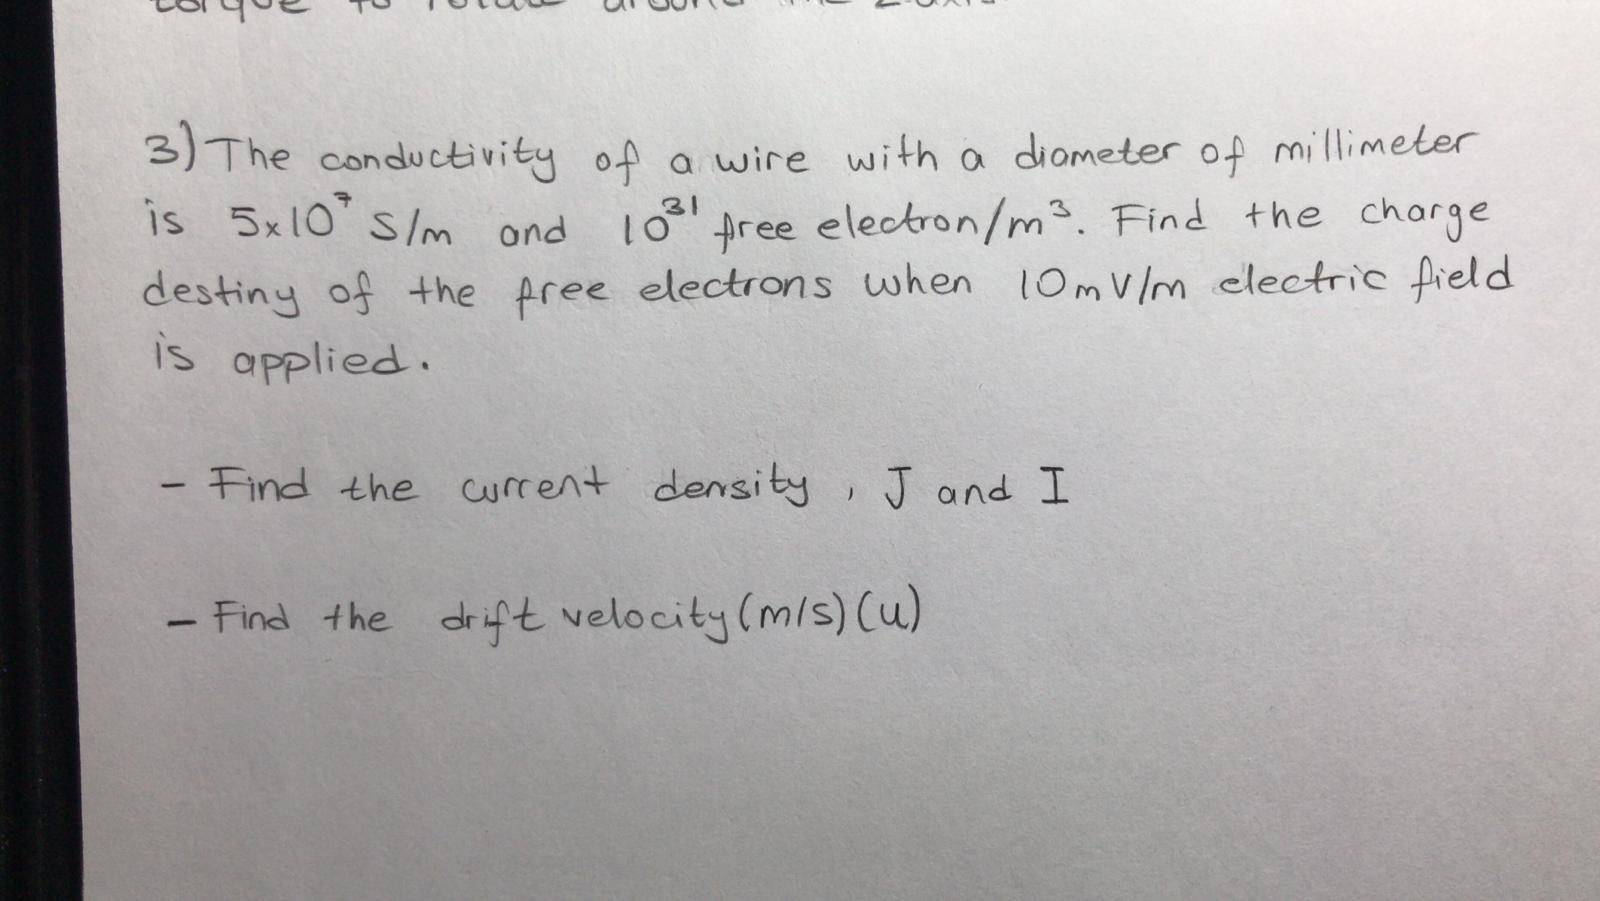 torque to rotate around the z-axis
3) The conductivity of a wire with a diameter of millimeter
is 5x10⁷ S/m and 10³¹ free electron/m³. Find the charge
destiny of the free electrons when 10mV/m electric field
is applied.
- Find the current density, J and I
- Find the drift velocity (m/s) (u)